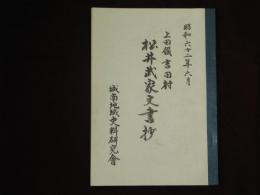 昭和六十二年六月
上田儀右衛門村
松井武家文書抄
城南地域史料研究會